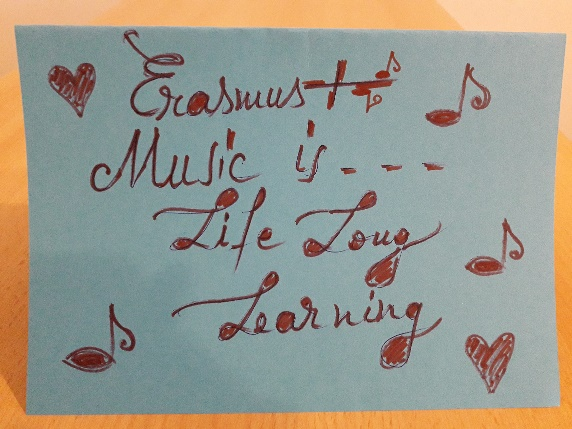 Erasmus+
Music is - - -
Life Long
Learning